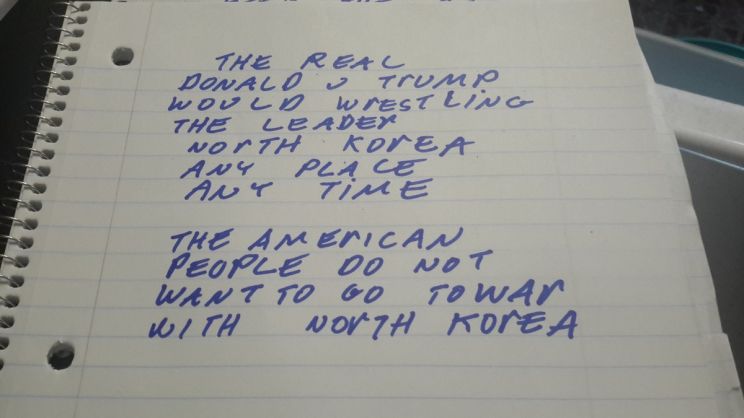 THE REAL
DONALD J TRUMP
WOULD WRESTLING
THE LEADER
NORTH KOREA
ANY PLACE
ANY TIME
THE AMERICAN
PEOPLE DO NOT
WANT TO GO TO WAR
WITH NORTH KOREA